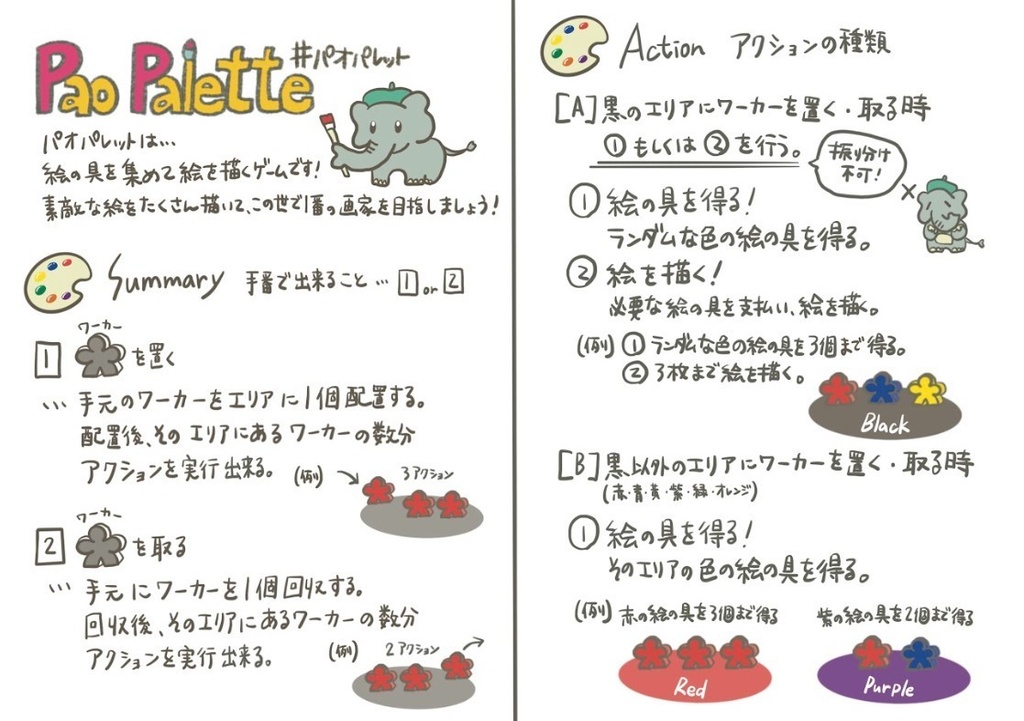 Pao Palette
#パオパレット
パオパレットは…
絵の具を集めて絵を描くゲームです!
素敵な絵をたくさん描いて、この世で1番の画家を目指しましょう!
Summary 手番で出来ること…1 or 2
ワーカー
1 を置く
… 手元のワーカーをエリアに1個配置する。
配置後、そのエリアにあるワーカーの数分
アクションを実行出来る。
(例)
3アクション
ワーカー
2 を取る
… 手元にワーカーを1個回収する。
回収後、そのエリアにあるワーカーの数分
アクションを実行出来る。
(例)
2アクション
Action アクションの種類
[A]黒のエリアにワーカーを置く・取る時
①もしくは②を行う。
振り分け
不可!
① 絵の具を得る!
ランダムな色の絵の具を得る。
② 絵を描く!
必要な絵の具を支払い、絵を描く。
(例) ① ランダムな色の絵の具を3個まで得る。
② 3枚まで絵を描く。
Black
[B]黒以外のエリアにワーカーを置く・取る時
(赤・青・黄・紫・緑・オレンジ)
① 絵の具を得る!
そのエリアの色の絵の具を得る。
(例) 赤の絵の具を3個まで得る
紫の絵の具を2個まで得る
Red
Purple